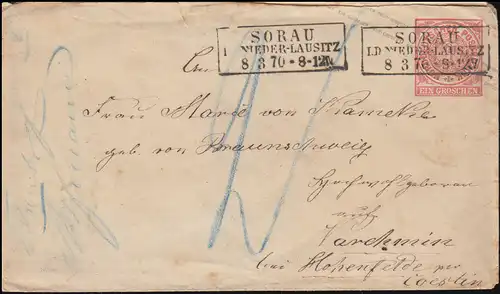 SORAU
I.D NIEDER-LAUSITZ
8 3 70 * 8-12V
SORAU
I.D NIEDER-LAUSITZ
8 3 70 * 8-12V
EIN GROSCHEN
An
Frau Marie von Kameke
geb. von Braunschweig
Hochwohlgeboren
auf
Varchmin
bei Hohenfelde per
Coeslin